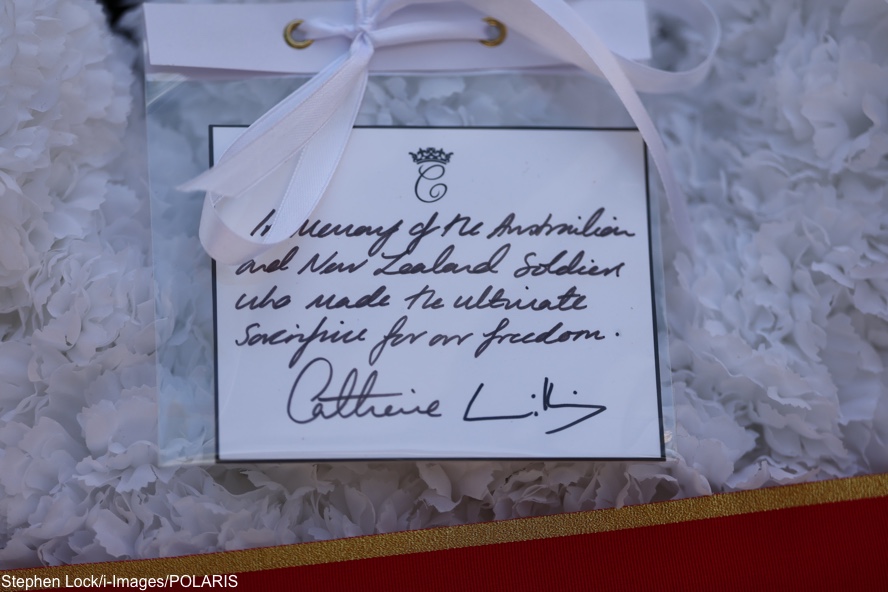 C
In Memory of the Australian
and New Zealand Soldiers
who made the ultimate
Sacrifice for our freedom.
Catherine
Stephen Lock/i-Images/POLARIS